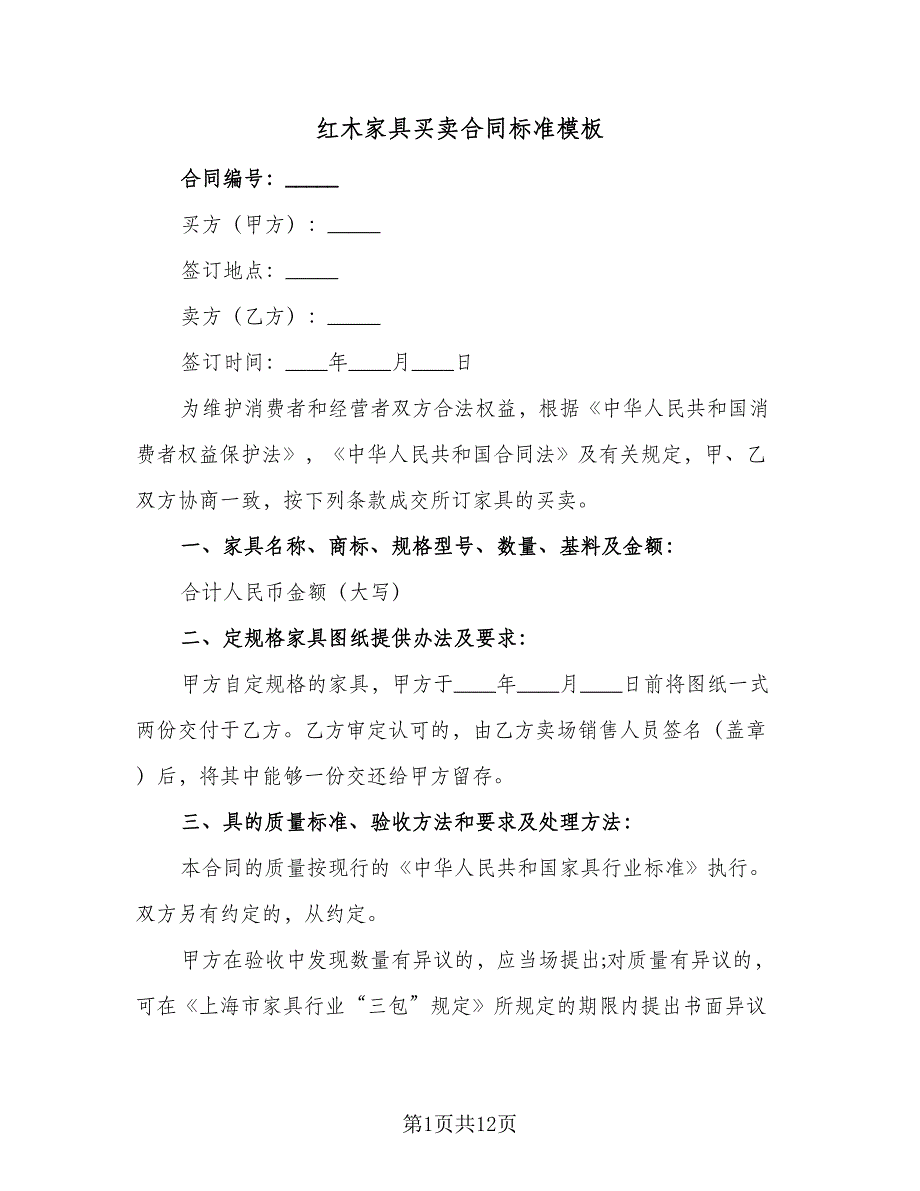 红木家具买卖合同标准模板
合同编号：_____
买方（甲方）：_____
签订地点：_____
卖方（乙方）：_____
签订时间：____年____月____日
为维护消费者和经营者双方合法权益，根据《中华人民共和国消
费者权益保护法》，《中华人民共和国合同法》及有关规定，甲、乙
双方协商一致，按下列条款成交所订家具的买卖。
一、家具名称、商标、规格型号、数量、基料及金额：
合计人民币金额（大写）
二、定规格家具图纸提供办法及要求：
甲方自定规格的家具，甲方于____年____月____日前将图纸一式
两份交付于乙方。乙方审定认可的，由乙方卖场销售人员签名（盖章
）后，将其中能够一份交还给甲方留存。
三、具的质量标准、验收方法和要求及处理方法：
本合同的质量按现行的《中华人民共和国家具行业标准》执行。
双方另有约定的，从约定。
甲方在验收中发现数量有异议的，应当场提出;对质量有异议的，
可在《上海市家具行业“三包”规定》所规定的期限内提出书面异议
第1页共12页